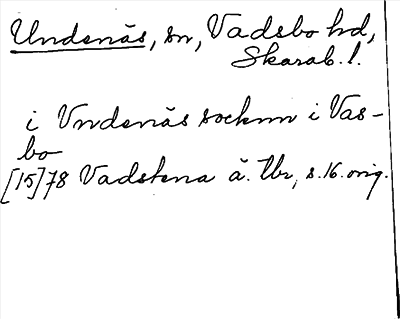 Undenäs, sn, Vadsbo hd,
Skarab. l.
i Vndenäs socknn i Vas-
bo
[15]78 Vadstena ä. Tbr, s. 16. orig.